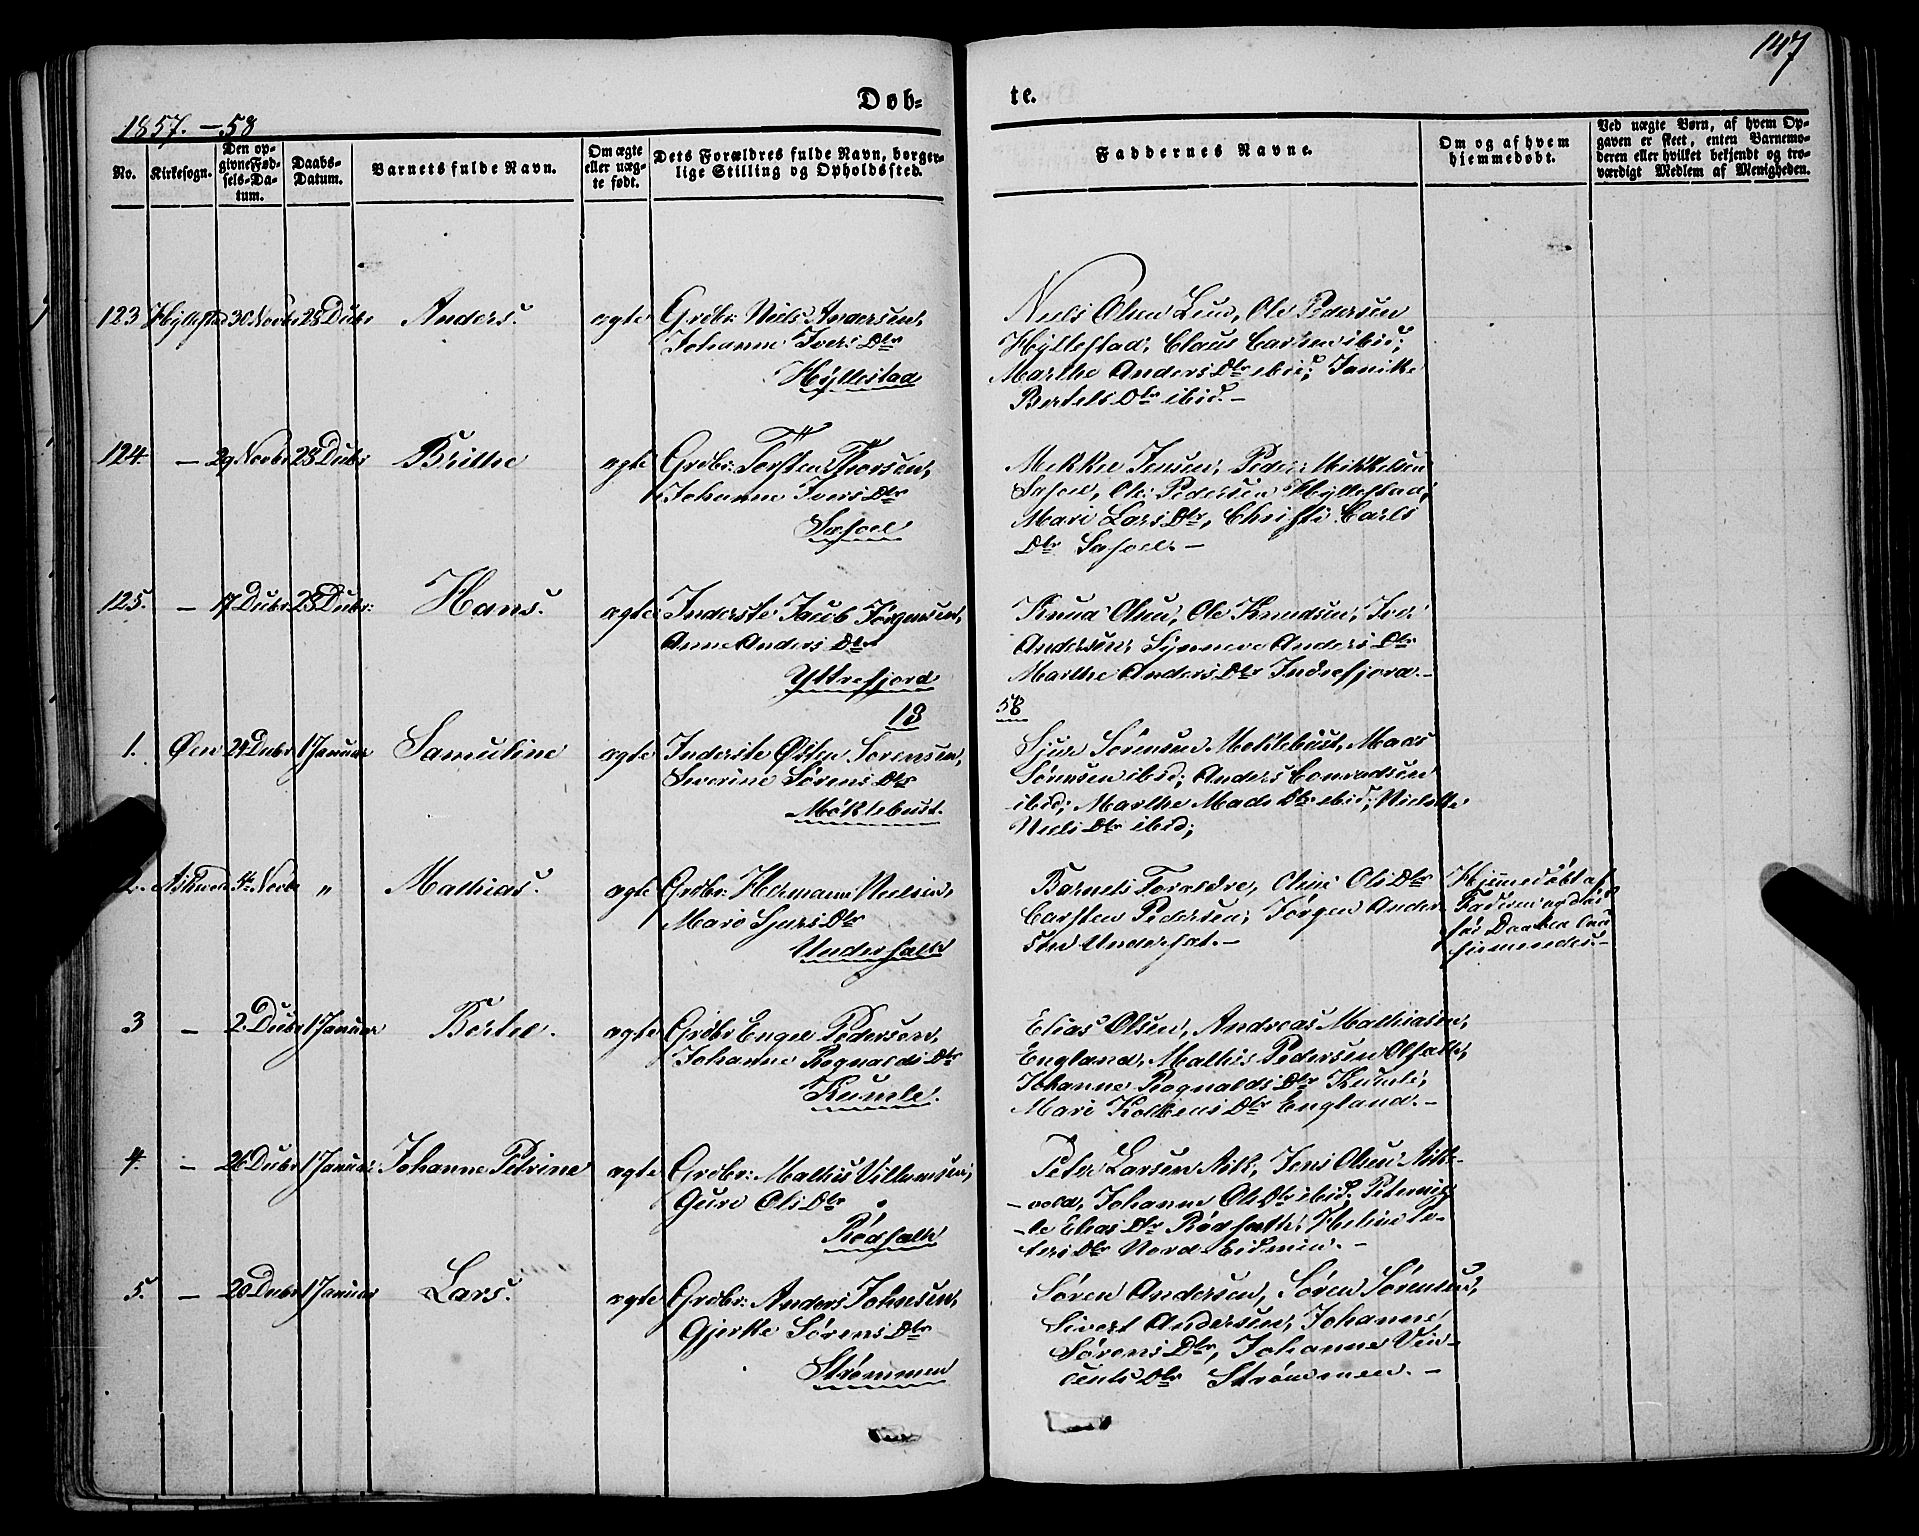 147
Døb-
te.
1857.-58
No.
Kirkesogn.
Den op-
givne Fød-
sels-Da-
tum.
Daabs-
Datum.
Barnets fulde Navn.
Om ægte
eller uæg-
te født.
Dets Forældres fulde Navn, borger-
lige Stilling og Opholdssted.
Faddernes Navne.
Om og af hvem
hjemmedøbt.
Ved uægte Børn, af hvem Op-
gaven er skeet, enten Barnemo-
deren eller hvilket bekjendt og tro-
værdigt Medlem af Menigheden.
123 Hyllestad 30 Novbr 28 Dcbr Anders. ægte Grdbr: Niels Andersen,
Johanne Ivers Dtr
Hyllestad
Niels Olsen Lun, Ole Pedersen
Hyllestad, Claus ibid;
Marthe Anders Dtr ibid; Janike
Bertels Dtr ibid.-
124. - 29 Novbr 28 Dcbr Brithe ægte Grdbr: Torsten Thorsen,
Johanne Ivers Dtr
Sæsoel
Mikkel Jensen, Peder Mikkelsen
Sæsoel, Ole Pedersen Hyllestad;
Mari Lars Dtr, Christi Carls
Dtr Sæsoel. -
125. - 17 Dcbr 28 Dcbr: Hans. ægte Inderste Jacob Jørgensen,
Anne Anders Dtr
Yttrefjord
Knud Olsen, Ole Knudsen, Iver
Andersen, Synneve Anders Dtr
Marthe Anders Dtr Indrefjord.-
18
58
1. Øen 24 Dcbr 1 Januar Samuline ægte Inderste Østen Sørensen,
Severine Sørens Dtr
Møklebust.
Sjur Sørensen Møklebust, Mads
Sørensen ibid; Anders Conradsen
ibid; Marthe Mads Dtr ibid;
Niels Dtr ibid;
2. Askvold Novbr " Mathias. ægte Grdbr: Hermann Nielsen,
Mari Sjurs Dtr
Undersaltt
Barnets Forældre, Oline Ols Dtr
Carsten Pedersen; Jørgen Ander
sen Undersat.-
Hjemmedøbt af
Faderen og
Daaben con
firmeredes.-
3 - 2 Dcbr 1 Januar Bertel. ægte Grdbr Engel Pedersen,
Johanne Rognalds Dtr
Kumle.
Elias Olsen, Andreas Mathiasen,
England, Mathis Pedersen
Johanne Rognalds Dtr Kumle;
Mari Dtr England.-
4. - 26 Dcbr 1 Januar Johanne Petrine ægte Grdbr: Mathis Villumsen,
Guri Ols Dtr
Rødsæth
Peter Larsen Ask, Jens Olsen Ask-
-vold, Johanne Ols Dtr ibid,
Elias Dtr Rødsæth; Heline Pe-
ters Dtr Nord
5. - 20 Dcbr 1 Januar Lars. ægte Grdbr: Anders Johnsen,
Gjerke Sørens Dtr
Strømmen
Søren Andersen, Søren Sørensen,
Sivert Andersen; Johanne
Sørens Dtr, Johanne Vin-
cents Dtr Strømmen. -